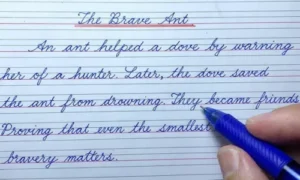 The Brave Ant
An ant helped a dove by warning
her of a hunter. Later, the dove saved
the ant from drowning. They became friends
Proving that even the smallest
bravery matters.